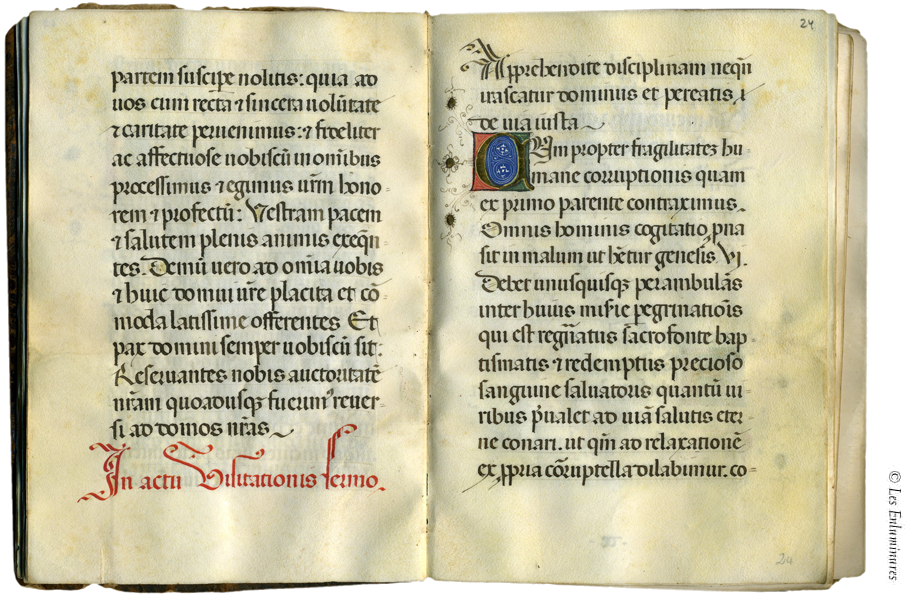 partem suscipe nolitis: quia ad
uos cum recta ⁊ sincera uolūtate
⁊ caritate peruenimus: ⁊ fideliter
ac affectuose uobiscū in om̄ibus
processimus ⁊ egimus ur̄m hono
rem ⁊ profectū: Vestram pacem
⁊ salutem plenis animis exeqn̄
tes. Demū uero ad om̄ia uobis
⁊ huic domui ur̄e placita et cō
moda latissime offerentes Et
pax domini semper uobiscū sit:
Reseruantes nobis auctoritatē
nr̄am quoadusqꝫ fuerimꝰ reuer-
si ad domos nr̄as
In actu Visitationis sermo.
24
Apprehendite disciplinam neqn̄
irascatur dominus et pereatis
de uia iusta
CUm propter fragilitateꝫ hu-
mane corruptionis quam
ex primo parente contraximus.
Omnis hominis cogitatio pna
sit in malum ut hētur genesis VI.
Debet unusquisqꝫ perambulās
inter huius mis̄ie pegrinatiōis
qui est regn̄atus sacro fonte bap-
tismatis ⁊ redemptus precioso
sanguine saluatoris quantū ui-
ribus p̄ualet ad uiā salutis eter-
ne conari. ut qm̄ ad relaxationē
ex ꝓpria cōruptella dilabimur. co-
24
© Les Enluminures